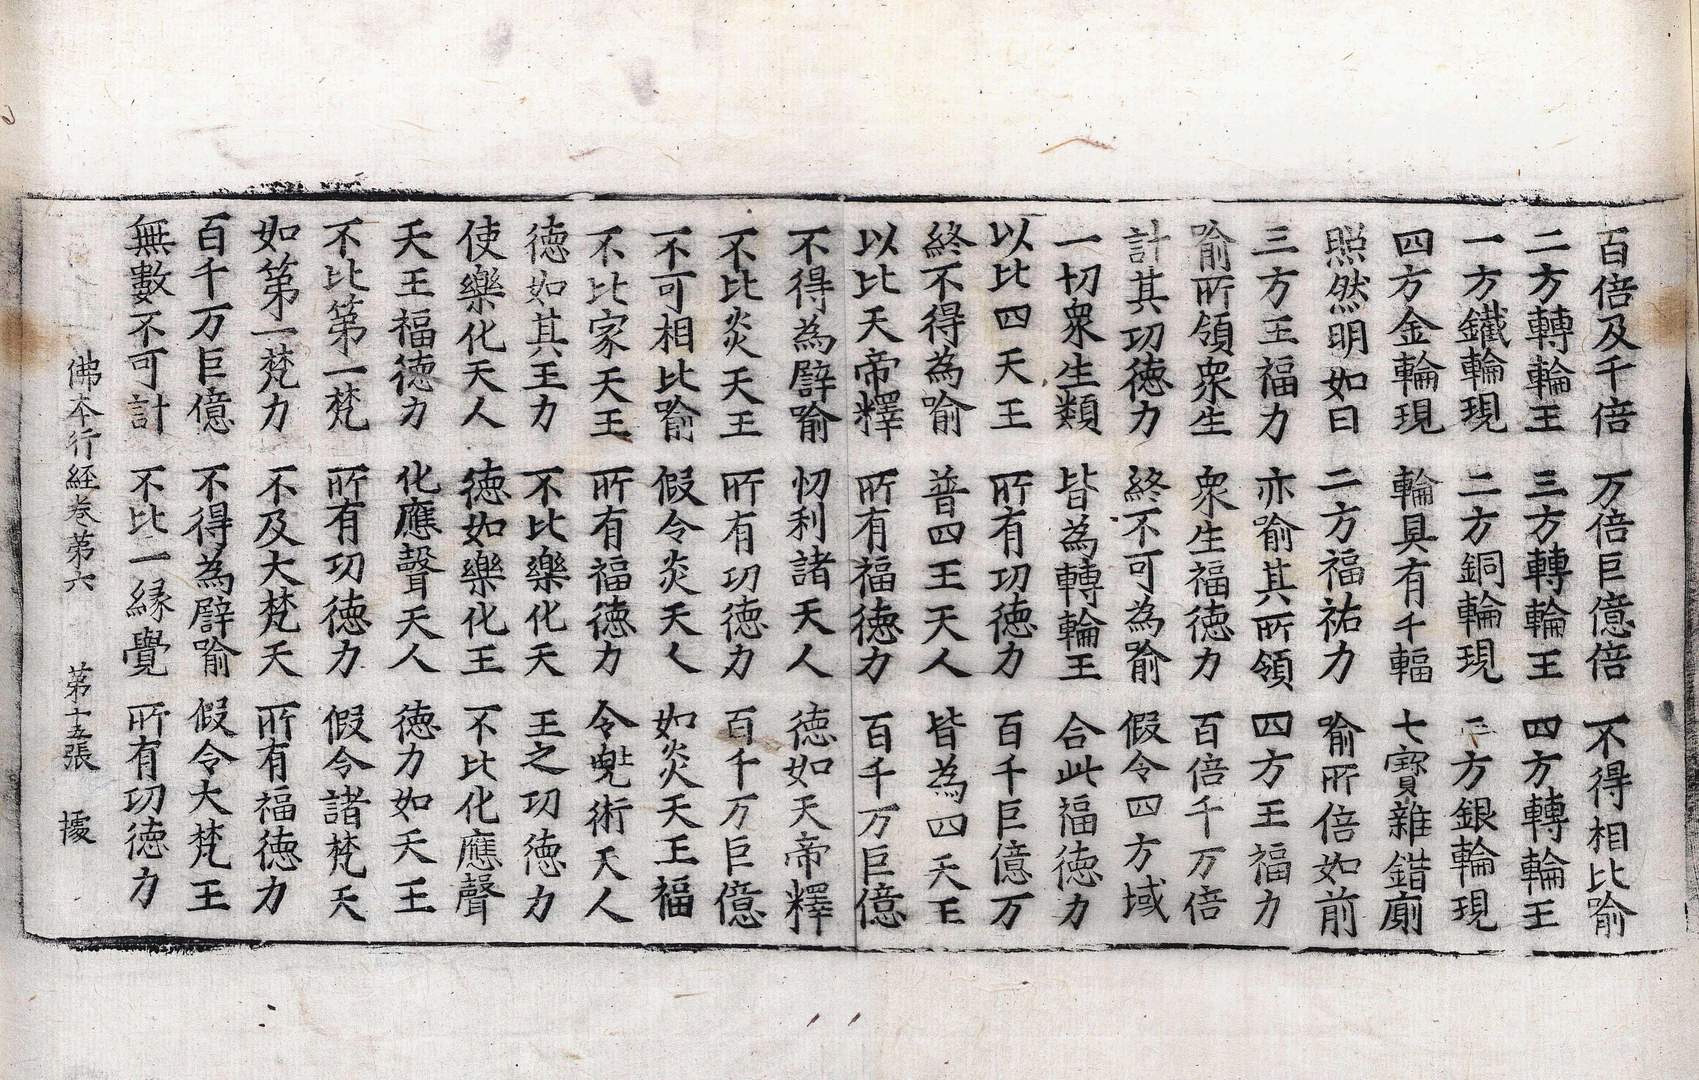 百倍及千倍　万倍巨億倍　不得相比喻
二方轉輪王　三方轉輪王　四方轉輪王
一方鐵輪現　二方銅輪現　三方銀輪現
四方金輪現　輪具有千輻　七寶雜錯廁
照然明如日　二方福祐力　喻所倍如前
三方王福力　亦喻其所領　四方王福力
喻所領衆生　衆生福德力　百倍千万倍
計其功德力　終不可為喻　假令四方域
一切衆生類　皆為轉輪王　合此福德力
以比四天王　所有功德力　百千巨億万
終不得為喻　普四王天人　皆為四天王
以比天帝釋　所有福德力　百千万巨億
不得為譬喻　忉利諸天人　德如天帝釋
不比炎天王　所有功德力　百千万巨億
不可相比喻　假令炎天人　如炎天王福
不比家天王　所有福德力　令兜術天人
德如其王力　不比樂化天　王之功德力
使樂化天人　德如樂化王　不比化應聲
天王福德力　化應聲天人　德力如天王
不比第一梵　所有功德力　假令諸梵天
如第一梵力　不及大梵天　所有福德力
百千万巨億　不得為譬喻　假令大梵王
無數不可計　不比一緣覺　所有功德力
佛本行經卷第六　第十五張　據